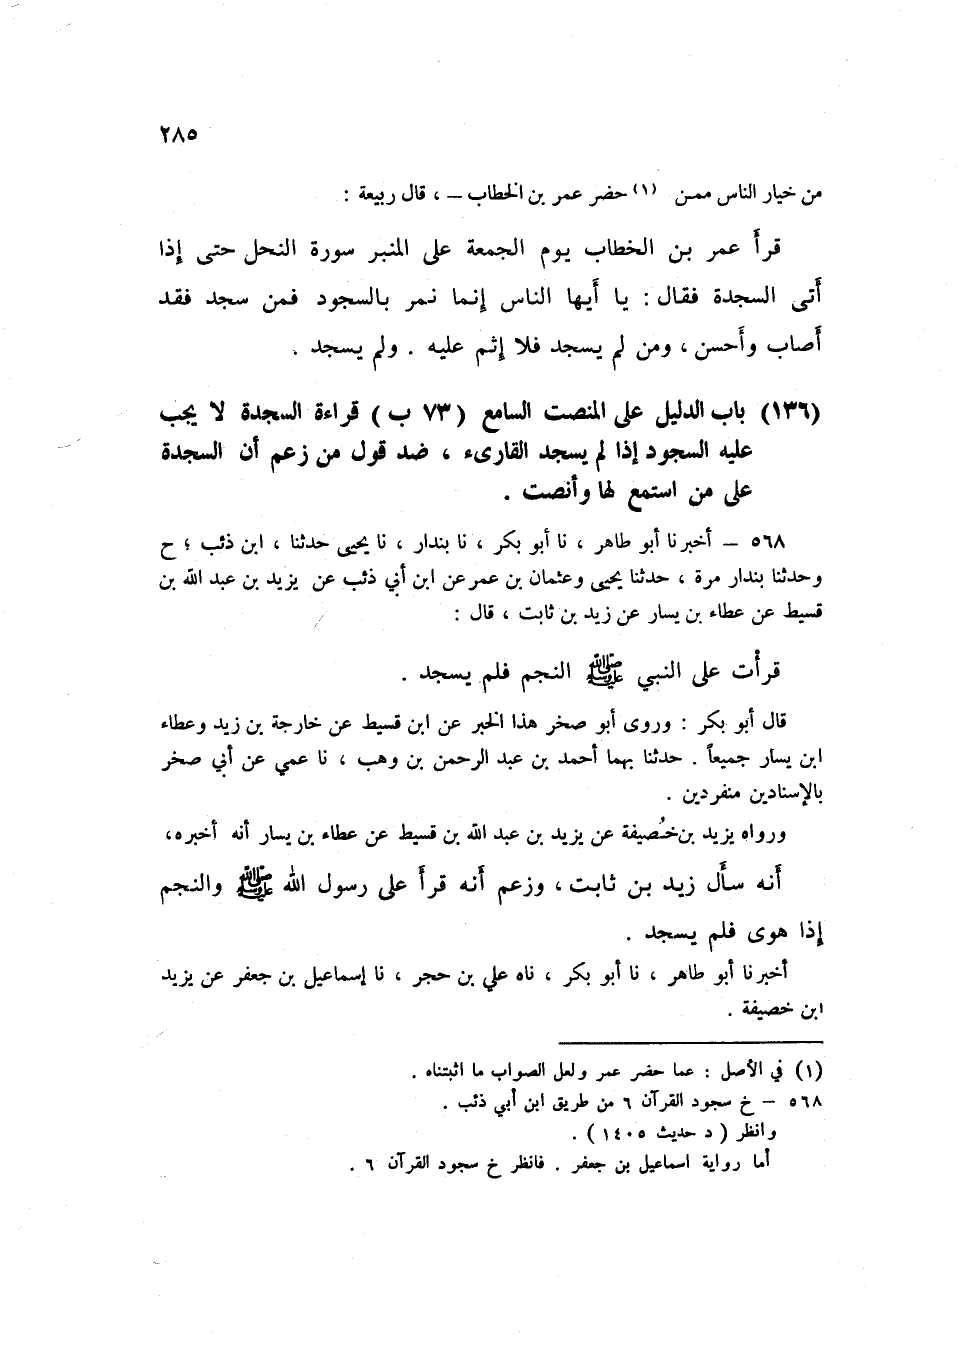 ٢٨٥
من خيار الناس ممن (١) حضر عمر بن الخطاب ــ ، قال ربيعة :
قرأ عمر بن الخطاب يوم الجمعة على المنبر سورة النحل حتى إذا
أتى السجدة فقال : يا أيها الناس إنما نمر بالسجود فمن سجد فقد
أصاب وأحسن ، ومن لم يسجد فلا إثم عليه . ولم يسجد .
(١٣٦) باب الدليل على المنصت السامع (٧٣ ب) قراءة السجدة لا يجب
عليه السجود إذا لم يسجد القارىء ، ضد قول من زعم أن السجدة
على من استمع لها وأنصت .
٥٦٨ ــ أخبرنا أبو طاهر ، نا أبو بكر ، نا بندار ، نا يحيى حدثنا ، ابن ذئب ؛ ح
وحدثنا بندار مرة ، حدثنا يحيى وعثمان بن عمر عن ابن أبي ذئب عن يزيد بن عبد الله بن
قسيط عن عطاء بن يسار عن زيد بن ثابت ، قال :
قرأْت على النبي ﷺ النجم فلم يسجد .
قال أبو بكر : وروى أبو صخر هذا الخبر عن ابن قسيط عن خارجة بن زيد وعطاء
ابن يسار جميعاً . حدثنا بهما أحمد بن عبد الرحمن بن وهب ، نا عمي عن أبي صخر
بالإسنادين منفردين .
ورواه يزيد بن خُصيفة عن يزيد بن عبد الله بن قسيط عن عطاء بن يسار أنه أخبره ،
أنه سأل زيد بن ثابت ، وزعم أنه قرأ على رسول الله ﷺ والنجم
إذا هوى فلم يسجد .
أخبرنا أبو طاهر ، نا أبو بكر ، ناه علي بن حجر ، نا إسماعيل بن جعفر عن يزيد
ابن خصيفة .
(١) في الأصل : عما حضر عمر ولعل الصواب ما اثبتناه .
٥٦٨ ــ خ سجود القرآن ٦ من طريق ابن أبي ذئب .
وانظر ( د حديث ١٤٠٥ ) .
أما رواية اسماعيل بن جعفر . فانظر خ سجود القرآن ٦ .